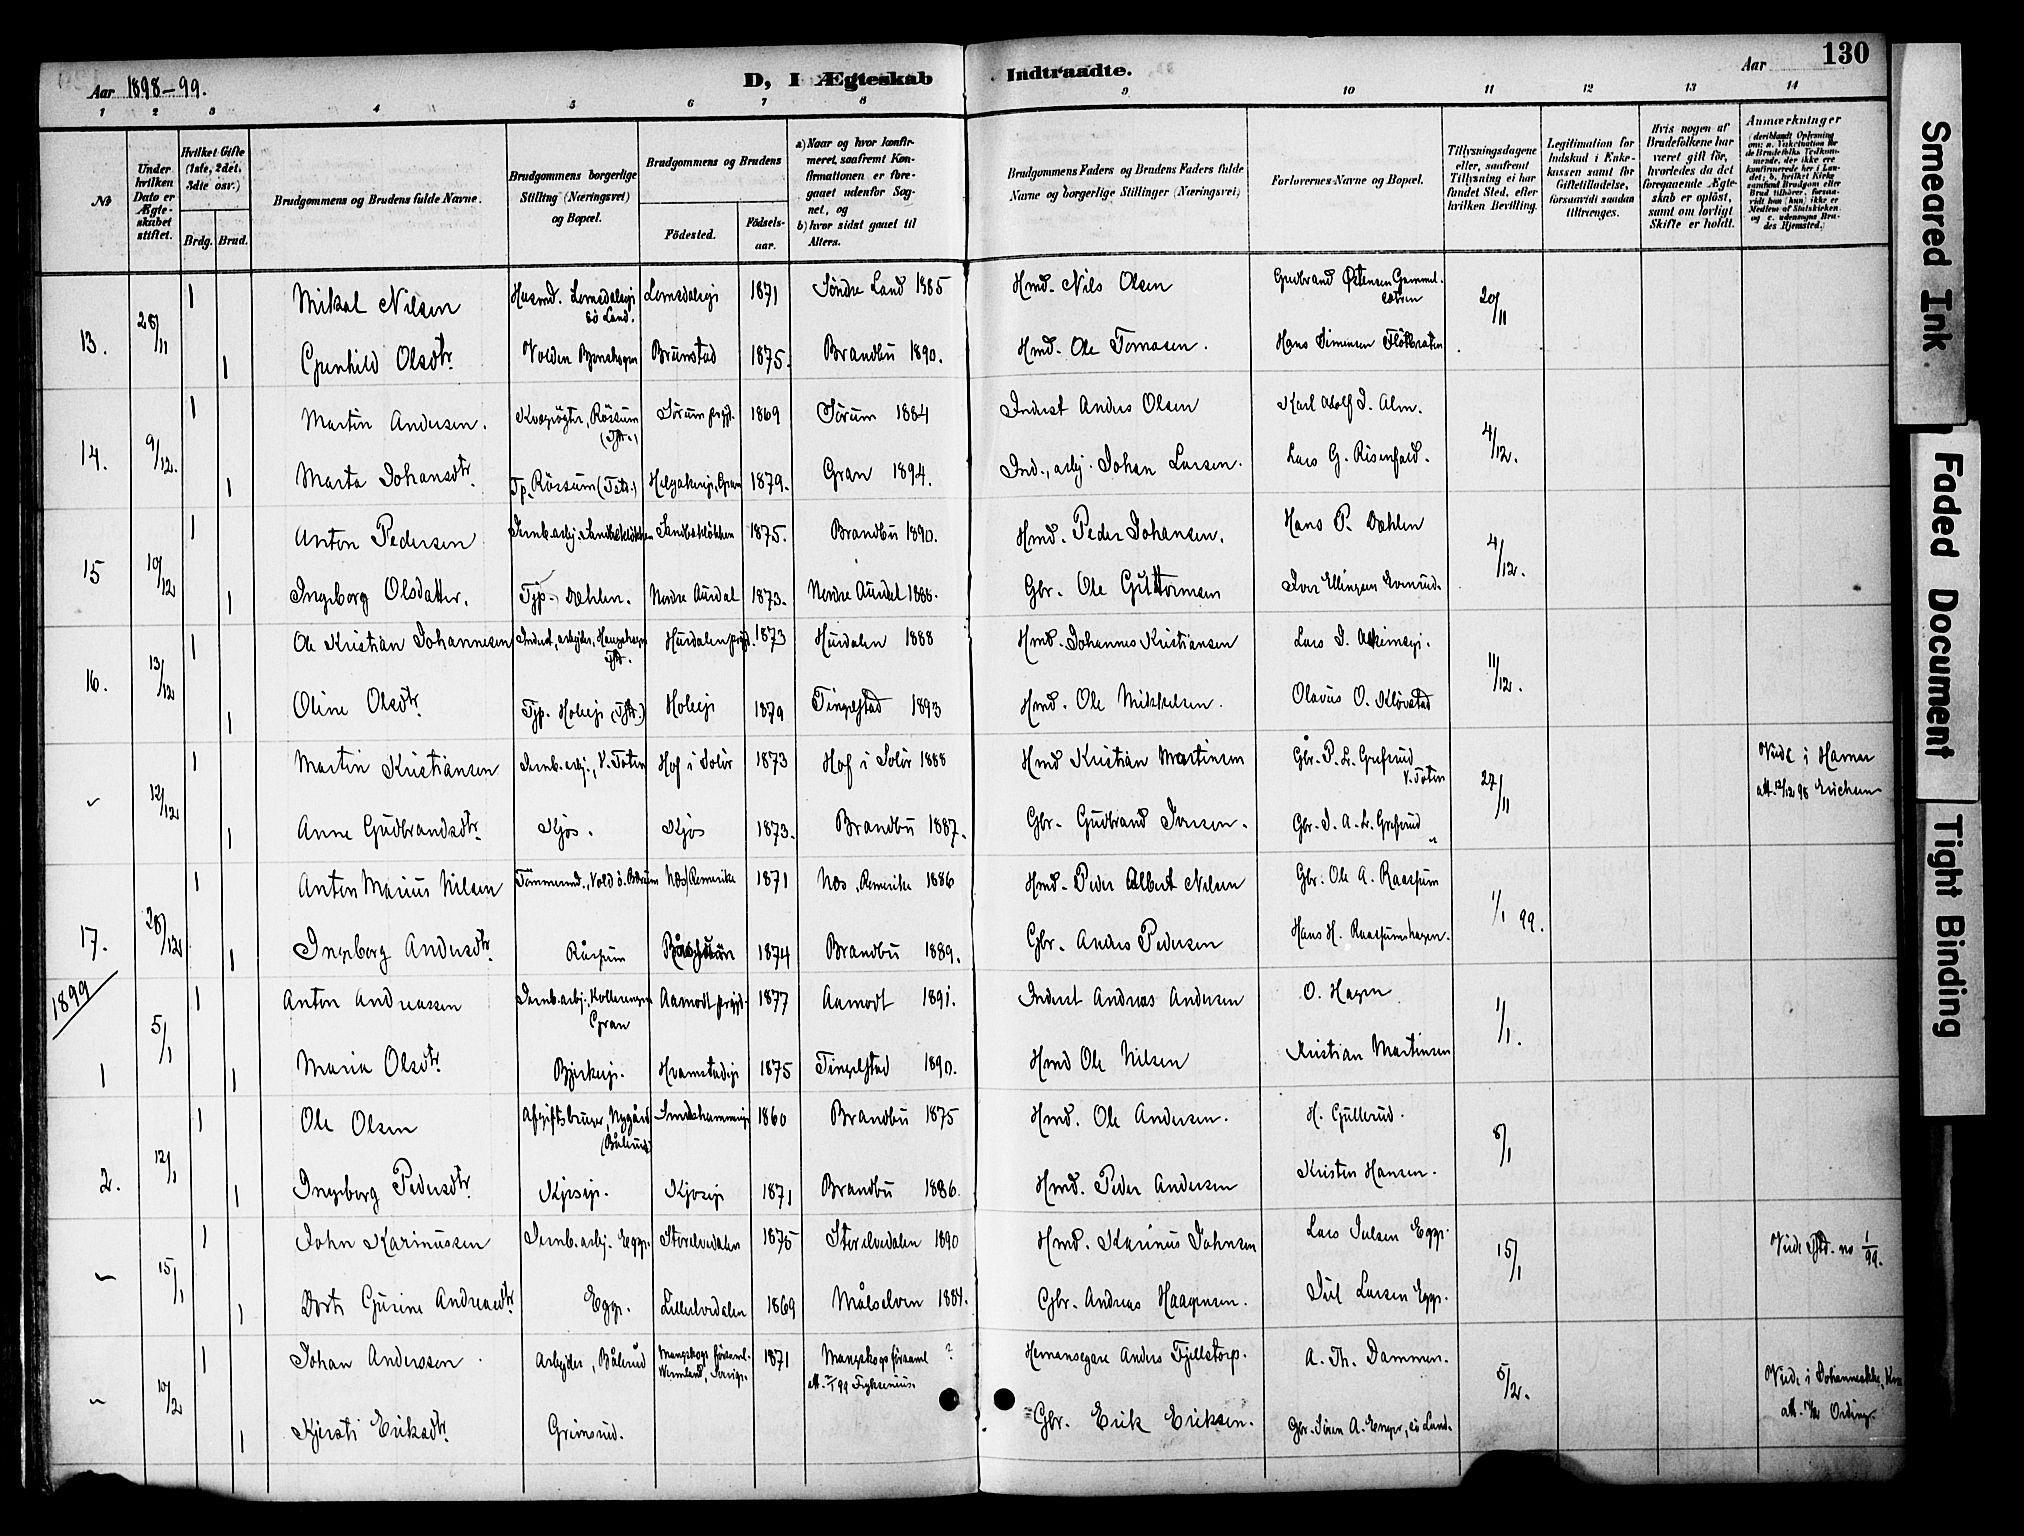 Aar 1898–99.
D, I Ægteskab Indtraadte.
Aar
130
1 2 3 4 5 6 7 8 9 10 11 12 13 14
№
Under hvilken Dato er Ægteskabet stiftet.
Hvilket Gifte (1ste, 2det, 3die osv.)
Brdg. Brud.
Brudgommens og Brudens fulde Navne.
Brudgommens borgerlige Stilling (Næringsvei) og Bopæl.
Brudgommens og Brudens
Födested.
Födselsaar.
a) Naar og hvor konfirmeret, saafremt Konfirmationen er foregaaet udenfor Sognet, og
b) hvor sidst gaaet til Alters.
Brudgommens Faders og Brudens Faders fulde Navne og borgerlige Stillinger (Næringsvei)
Forlovernes Navne og Bopæl.
Tillysningsdagene eller, saafremt Tillysning ei har fundet Sted, efter hvilken Bevilling.
Legitimation for Indskud i Enkekassen samt for Giftetilladelse, forsaavidt saadan tiltrænges.
Hvis nogen af Brudefolkene har været gift för, hvorledes da det foregaaende Ægteskab er oplöst, samt om lovligt Skifte er holdt.
Anmærkninger
13. 28/11 1 Mikal Nilsen Husmd. Lomsdalseje Sö Land. Lomsdalseje 1871 Söndre Land 1885 Hmd. Nils Olsen Gudbrand Östensen Gammelsætren 20/11
1 Gunhild Olsdtr. Volden Brunstad 1875. Brandbu 1890. Hmd. Ole Tomasen. Hans Simensen
14. 9/12. 1 Martin Andersen. Kvægrögter, Rössum (Tgst.) Sörum prgj. 1869 Sörum 1884 Inderst Anders Olsen Karl Adolf J. Alm. 4/12.
1 Marta Johansdtr. Tp. Rössum (Tgst.) Helgakereje, Gran 1879. Gran 1894. Ind., arbj. Johan Larsen. Lars G. Risenfald.
15 10/12 1 Anton Pedersen Jernb.arbj. Sandbakklökken Sandbakklökken 1875. Brandbu 1890. Hmd. Peder Johansen. Hans P. Dæhlen 4/12.
1 Ingeborg Olsdatter. Tjp. Dæhlen. Nordre Aurdal 1873. Nordre Aurdal 1888. Gbr. Ole Guttormsen Iver Ellingsen
16. 13/12 1 Ole Kristian Johannesen Inderst, arbejder, Haugshagen Tgst. Hurdalen prgj. 1873 Hurdalen 1888 Hmd. Johannes Kristiansen Lars J. 11/12.
1 Oline Olsdtr. Tjp. Holeeje (Tgst.) Holeeje 1879 Tingelstad 1893 Hmd. Ole Mikkelsen. Olavus O. Klövstad
" 12/12 1 Martin Kristiansen Jernb.arbj., V. Toten Hof i Solör 1873 Hof i Solör 1888 Hmd Kristian Martinsen Gbr. P. L. Grefsrud V. Toten 27/11 Viede i Hamar att. 12/12 98 Erichsen
1 Anne Gudbrandsdtr. Kjos. Kjos 1873. Brandbu 1887. Gbr. Gudbrand Iversen. Gbr. J. A. L. Grefsrud "
17. 28/12 1 Anton Marius Nilsen Tömmermd., Vold ö. Næs, Romerike 1871 Næs, Romerike 1886 Hmd. Peder Albert Nilsen Gbr. Ole A. Raassum 1/1 99.
1 Ingeborg Andersdtr. Råssum Råssum 1874 Brandbu 1889. Gbr. Anders Pedersen Hans H. Raassumshagen.
1899
1 5/1 1 Anton Andreassen Jernb.arbj., Gran Aamodt prgjd. 1877 Aamodt 1891. Inderst Andreas Andersen O. Hagen 1/1.
1 Maria Olsdtr. Bjerkeeje. Hvamstadeje 1875 Tingelstad 1890. Hmd Ole Nilsen Kristian Martinsen
2. 12/1 1 Ole Olsen Afgiftsbruger, Nygård (Bålerud) Smedshammereje 1860 Brandbu 1875 Hmd. Ole Andersen. H. Gullerud. 8/1
1 Ingeborg Pedersdtr. Kjoseje. Kjoseje 1871 Brandbu 1886. Hmd. Peder Andersen Kristen Hansen.
" 15/1 1 John Karinussen Jernb.arbj. Egge. Storelvedalen 1875 Storelvedalen 1890 Hmd. Karinus Johnsen Lars Julsen Egge. 15/1 Viede no 1/99.
1 Dorte Gurine Andreasdtr. Egge. Lilleelvedalen 1869 Målselven 1884. Gbr. Andreas Haagensen. Juel Larsen Egge.
" 10/2 1 Johan Anderssen. Arbejder, Bålerud Mangskogs församl. Wermland, Sverige. 1871 Mangskogs församl ? Hemansegare Anders Fjellstorp. A. Th. Dammen. 5/2. Viede i
1 Kjersti Eriksdtr. Grinsrud. Gbr. Erik Eriksen. Gbr. Sören A. Enger, Sö Land.
Smeared Ink
Faded Document
Tight Binding